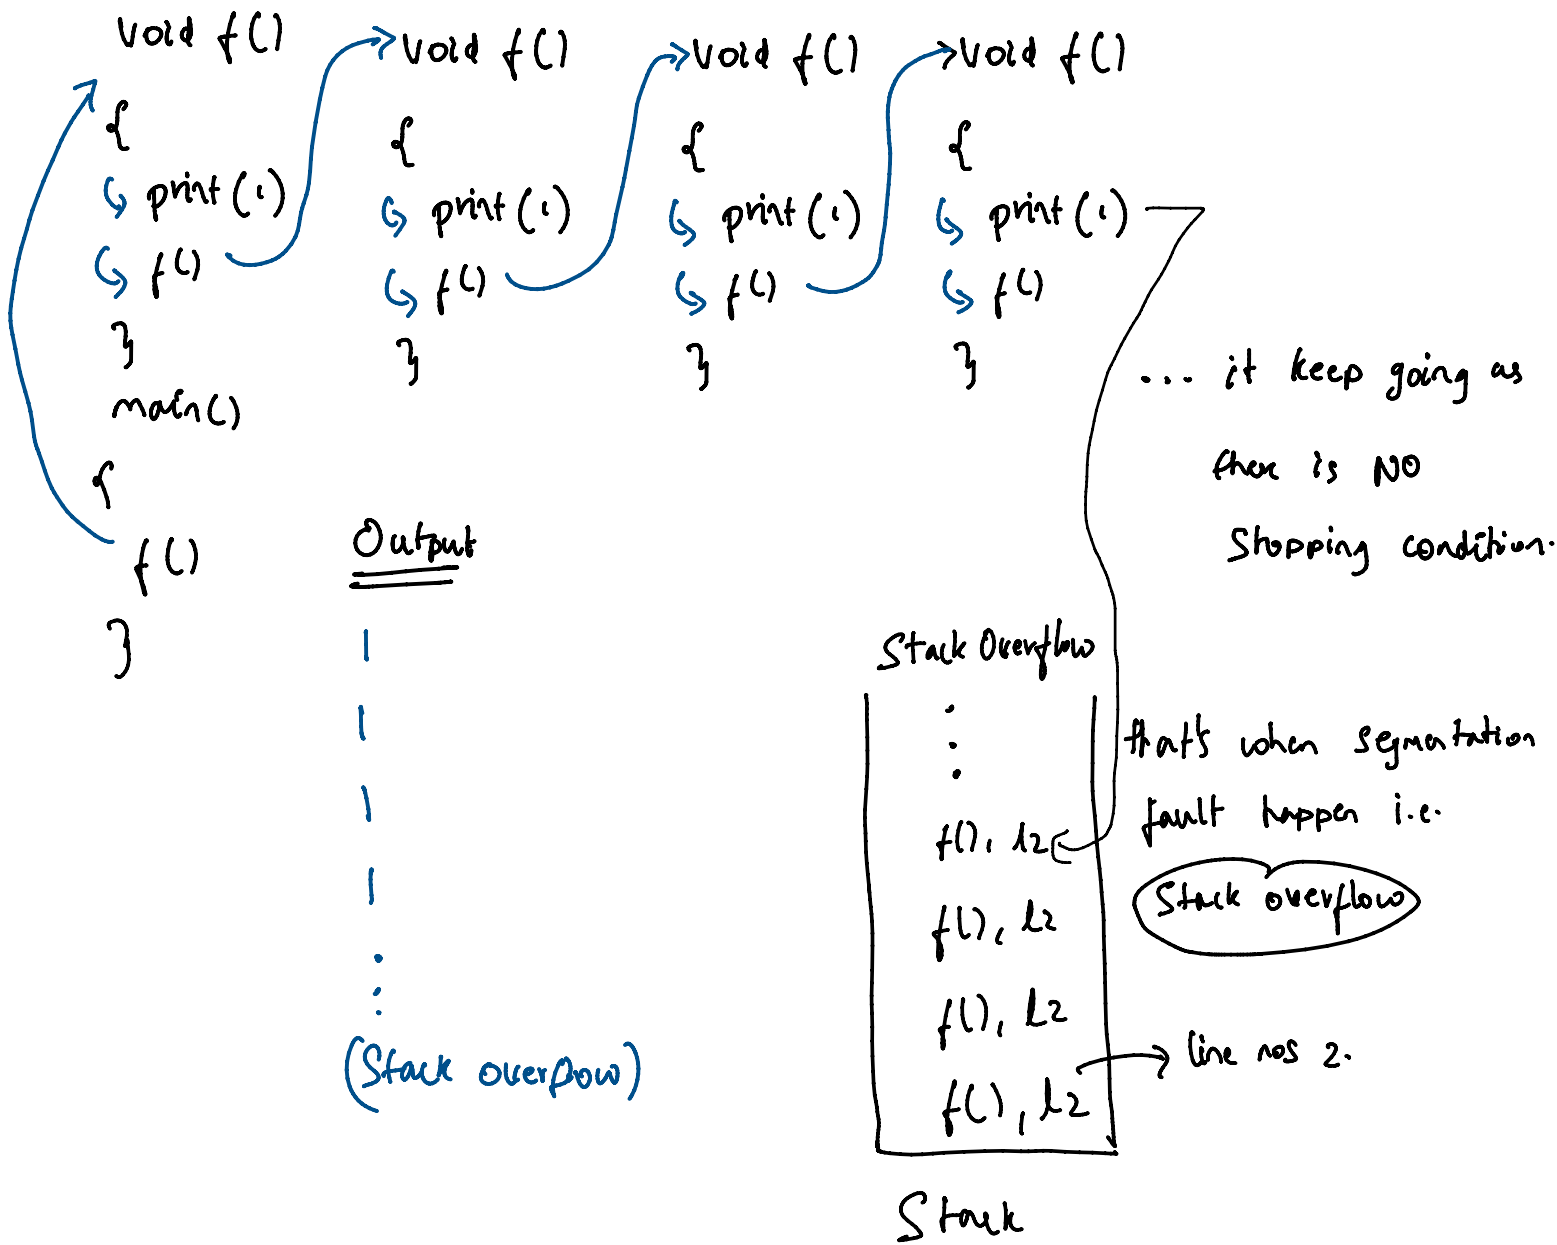 void f()
{
print(1)
f()
}
main()
{
f()
}
void f()
{
print(1)
f()
}
void f()
{
print(1)
f()
}
void f()
{
print(1)
f()
}
... it keep going as
there is NO
Stopping condition.
Output
1
1
1
1
(Stack overflow)
Stack Overflow
f(), l2
f(), l2
f(), l2
f(), l2
Stack
that's when segmentation
fault happen i.e.
Stack overflow
line nos 2.